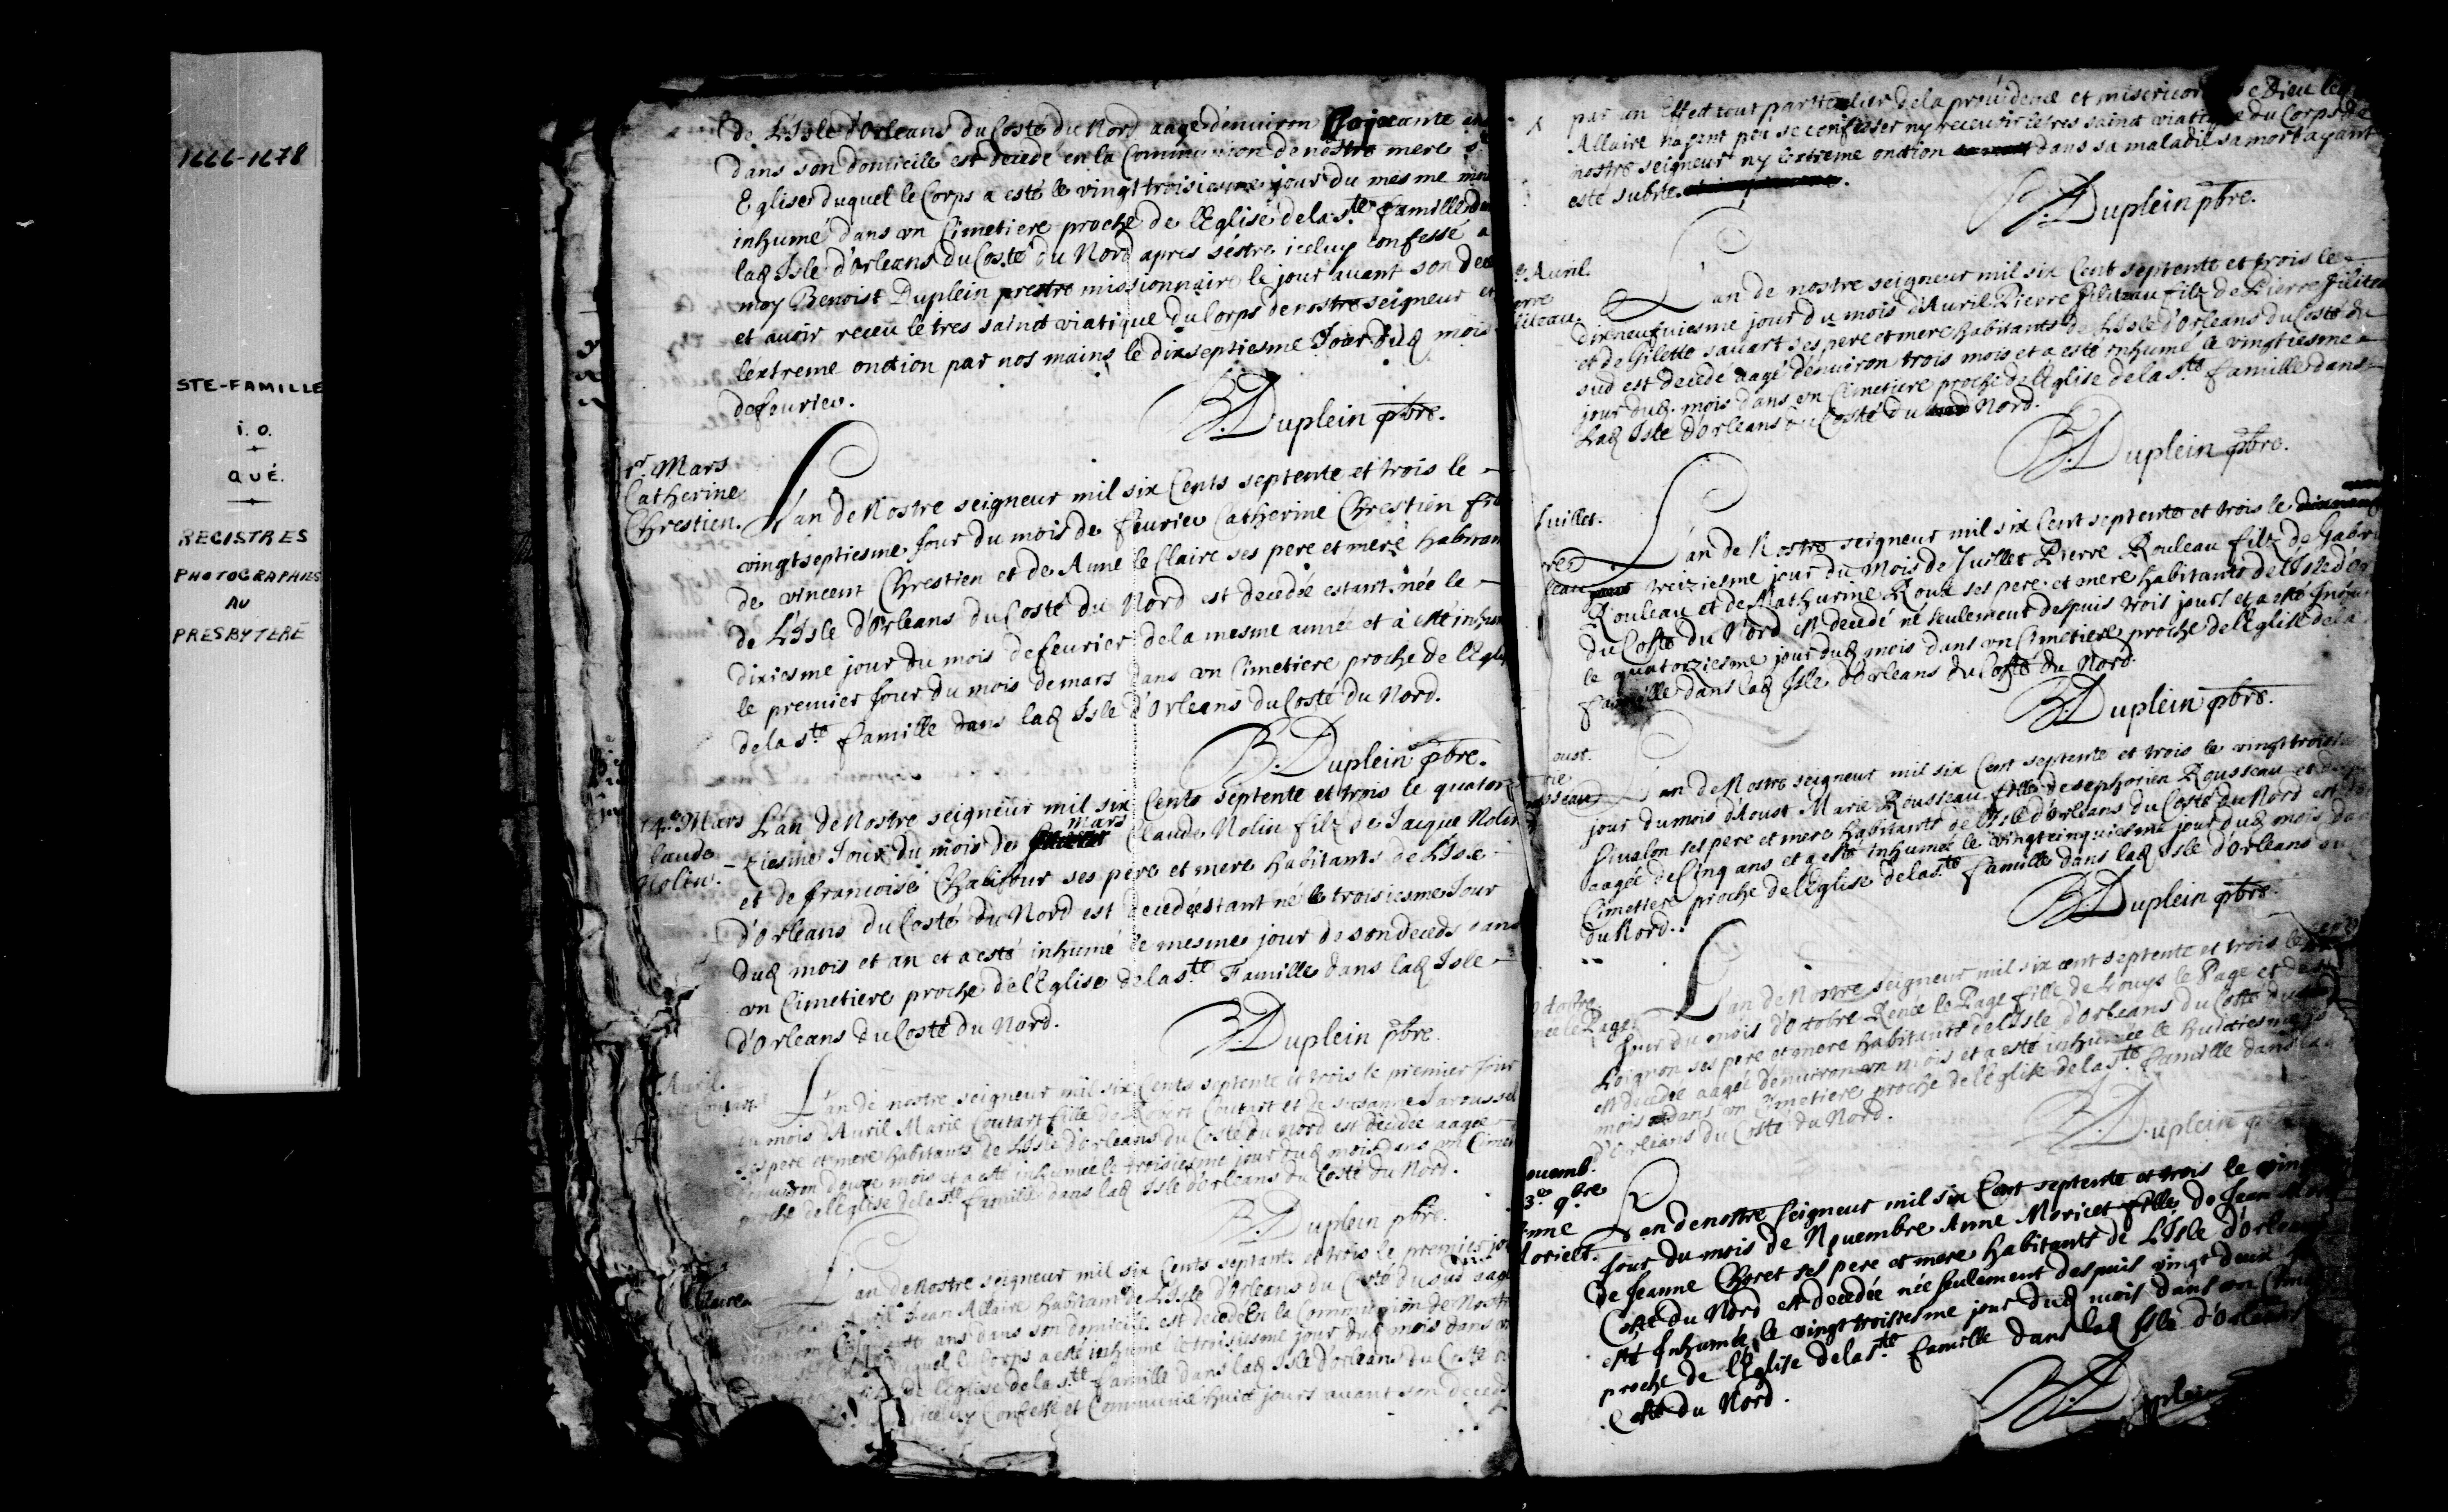 1666-1678
STE-FAMILLE
i. o.
QUÉ.
REGISTRES
PHOTOGRAPHIES
AU
PRESBYTERE
de L'Isle d'Orleans du Costé du Nord aagé d'enuiron soixante ans
dans son domicile est decedé en la Communion de nostre mere ste
Eglise duquel le Corps a esté le vingt troisiesme jour du mesme mois
inhumé dans vn Cimetiere proche de l'Eglise de la ste famille dans
lad Isle d'Orleans du Costé du Nord apres s'estre iceluy confessé a
moy Benoist Duplein prestre missionnaire le jour auant son deces
et auoir receu le tres sainct viatique du Corps de nostre seigneur et
l'extreme onction par nos mains le dixseptiesme Jour dud mois
de feurier.
B. Duplein pbre.
1er Mars
Catherine
Chrestien.
L'an de Nostre seigneur mil six Cents septente et trois le
vingtseptiesme Jour du mois de feurier Catherine Chrestien fille
de vincent Chrestien et de Anne le Claire ses pere et mere habitants
de L'Isle d'Orleans du Costé du Nord est decedée estant née le
dixiesme jour du mois de feurier de la mesme année et à esté inhumée
le premier Jour du mois de mars dans vn Cimetiere proche de l'Eglise
de la ste famille dans lad Isle d'Orleans du Costé du Nord.
B. Duplein pbre.
14e Mars
Claude
Nolin.
L'an de Nostre seigneur mil six Cents septente et trois le quator-
-ziesme Jour du mois de mars Claude Nolin filz de Jacque Nolin
et de francoise Chalifour ses pere et mere habitants de L'Isle
d'Orleans du Costé du Nord est decedé estant né le troisiesme Jour
dud mois et an et a esté inhumé le mesme jour de son deceds dans
vn Cimetiere proche de l'Eglise de la ste Famille dans lad Isle
d'Orleans du Costé du Nord.
B. Duplein pbre.
Auril.
Coutart
L'an de nostre seigneur mil six Cents septente et trois le premier Jour
du mois d'Auril Marie Coutart fille de Robert Coutart et de Susanne Jaroussel
ses pere et mere habitants de L'Isle d'Orleans du Costé du Nord est decedée aagée
d'enuiron douze mois et a esté inhumée le troisiesme jour dud mois dans vn Cimetiere
proche de l'Eglise de la ste famille dans lad Isle d'Orleans du Costé du Nord.
B. Duplein pbre.
Allaire
L'an de Nostre seigneur mil six Cents septante et trois le premier jour
Auril Jean Allaire habitant de L'Isle d'Orleans du Costé du sud aagé
d'enuiron ans dans son domicile est decedé en la Communion de Nostre
duquel le Corps a esté inhumé le troisiesme jour dud mois dans vn
de l'Eglise de la ste famille dans lad Isle d'orleans du Costé
iceluy Confessé et Communié huict jours auant son deceds
par un Effect tout particulier de la prouidence et misericorde de Dieu led
Allaire n'ayant peu se confesser ny receuoir le tres sainct viatique du Corps de
nostre seigneur ny l'extreme onction dans sa maladie sa mort ayant
esté subite.
B. Duplein pbre.
Auril.
Pierre
filiteau.
L'an de nostre seigneur mil six Cent septente et trois le
dixneufuiesme jour du mois d'Auril Pierre filiteau filz de Pierre filiteau
et de Gilette sauart ses pere et mere habitants de L'Isle d'Orleans du Costé du
sud est decedé aagé d'enuiron trois mois et a esté inhumé le vingtiesme
jour dud mois dans vn Cimetiere proche de l'Eglise de la ste famille dans
Lad Isle d'Orleans du Costé du Nord.
B. Duplein pbre.
Juillet.
L'an de Nostre seigneur mil six Cent septente et trois le
treiziesme jour du Mois de Juillet Pierre Rouleau filz de Gabriel
Rouleau et de Mathurine Roux ses pere et mere habitants de L'Isle d'Or
du Costé du Nord est decedé né seulement despuis trois jours et a esté Inhumé
le quatorziesme jour dud mois dans vn Cimetiere proche de l'Eglise de la
famille dans lad Isle d'Orleans du Costé du Nord.
B. Duplein pbre.
oust.
sseau
L'an de Nostre seigneur mil six Cent septente et trois le vingt troisiesme
jour du mois d'Aoust Marie Rousseau fille de sephorien Rousseau et de
Siualon ses pere et mere habitants de L'Isle d'Orleans du Costé du Nord est
aagée de Cinq ans et a esté Inhumée le vingtcinquiesme jour dud mois dans
Cimetiere proche de l'Eglise de la ste famille dans lad Isle d'Orleans du
du Nord.
B. Duplein pbre.
Octobre.
née le Page.
L'an de Nostre seigneur mil six cent septente et trois le
Jour du mois d'Octobre Renée le Page fille de Louys le Page et de
Loignon ses pere et mere habitants de l'Isle d'Orleans du Costé du
est decedée aagée d'enuiron vn mois et a esté inhumée le huictiesme
mois dans vn Cimetiere proche de l'Eglise de la ste famille dans lad
d'Orleans du Costé du Nord.
B. Duplein pbre
ouemb.
3e 9bre
Anne
Moricet.
L'an de nostre Seigneur mil six Cent septente et trois le vingt
Jour du mois de Nouembre Anne Moricet fille de Jean Mor
de Jeanne Choret ses pere et mere habitants de L'Isle d'Orleans
Costé du Nord est decedée née seulement despuis vingt deux
esté Inhumée le vingt troisiesme jour dud mois dans vn Cime
proche de l'Eglise de la ste famille dans lad Isle d'Orleans
Costé du Nord.
B. Duplein